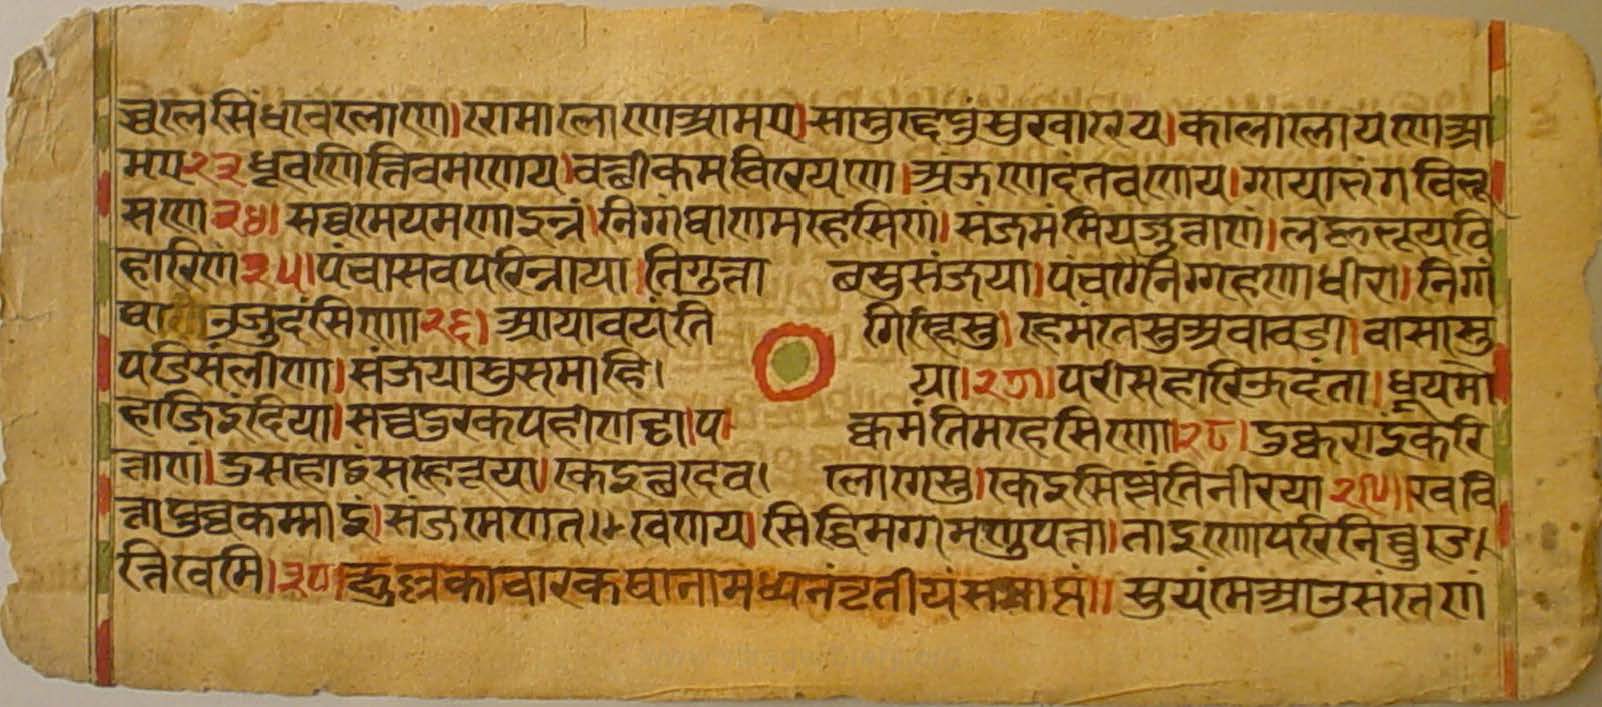 च्चलेसिंधवेलोणे। रोमालोणेआमए। सामुद्देपंसुखारेय। कालालोणेयआ
मए२३ धूवणेत्तिवमणेय। वत्थीकमविरेयणे। अंजणेदंतवणेय। गायाभंगविभू
सणे२४। सव्वमेयमणाइन्नं। निग्गंथाणमहेसिणं। संजमंमियजुत्ताणं। लहुभूयवि
हारिणं२५। पंचासवपरिन्नाया। तिगुत्ता छसुसंजया। पंचनिग्गहणाधीरा। निग्गं
था उजुदंसिणो२६। आयावयंति गिम्हेसु। हेमंतेसुअवावडा। वासासु
पडिसंलीणा। संजयासुसमाहि। या।२७। परीसहारिऊदंता। धूयमो
हाजिइंदिया। सव्वदुरकपहीणट्ठा। प। क्कमंतिमहेसिणो।२८। दुक्कराइंकरि
त्ताणं। दुसहाइंसहेत्तुया। केइत्थदेव। लोगेसु। केइसिझंतिनीरया२९। खवि
त्तापुव्वकम्माइं। संजमेणत।वेणय। सिद्धिमग्गमणुपत्ता। ताइणोपरिनिव्वुडे।
त्तिबेमि।३०। क्षुल्लकाचारकथानामध्यनंतृतीयंसमाप्तं।। सुयंमेआउसंतेणं